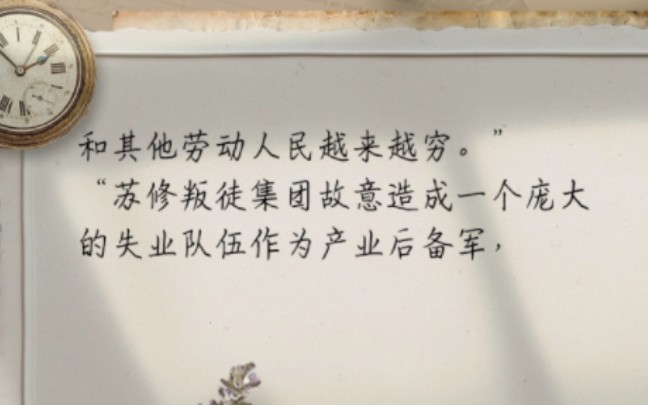 和其他劳动人民越来越穷。”
“苏修叛徒集团故意造成一个庞大
的失业队伍作为产业后备军，